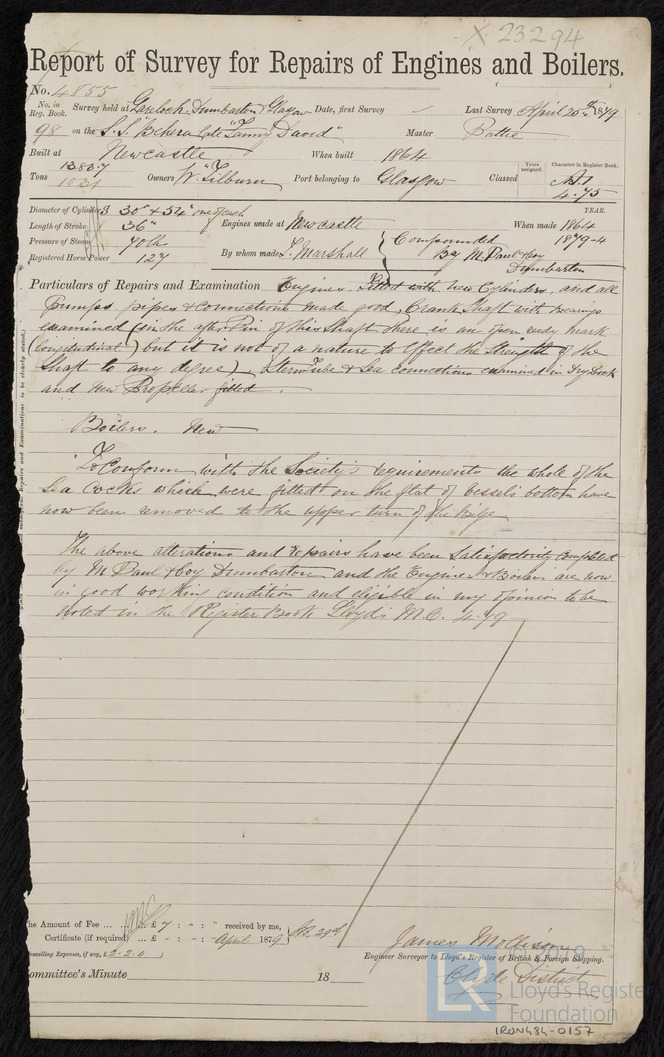 X 23294
Report of Survey for Repairs of Engines and Boilers.
No. 4855
No. in Reg. Book. Survey held at Gareloch, Dumbarton & Glasgow Date, first Survey Last Survey April 20th 1879
98 on the S.S. "Behera" late "Fanny David" Master
Built at Newcastle When built 1864 Years assigned. Character in Register Book.
Tons Owners W. Tilburn Port belonging to Glasgow Classed A.1
4.75
Diameter of Cylinders 30" & 54" one of each YEAR.
Length of Stroke 36" Engines made at Newcastle When made 1864
Pressure of Steam 70 lbs By whom made T. Marshall Compounded 1879-4
Registered Horse Power 127 By M. Paul & Coy
Dumbarton
Particulars of Repairs and Examination Engines. Fitted with two Cylinders, and all
pumps pipes & connections made good, Crank Shaft with bearings
examined (in the after Pin of this Shaft there is an open reedy mark
(longitudinal) but it is not of a nature to Effect the Strength of the
Shaft to any degree) Stern Tube & Sea connections examined in Dry Dock
and new Propeller fitted.
Boilers. New
To Conform with the Society's requirements the whole of the
Sea Cocks which were fitted on the flat of vessel's bottom have
now been removed to the upper turn of the Bilge
The above alterations and repairs have been Satisfactorily Completed
by M. Paul & Coy Dumbarton and the Engines & Boilers are now
in good working condition and eligible in my opinion to be
noted in the Register Book Lloyd's M.C. 4.79
The Amount of Fee ... ... £ 7 : " : " received by me,
Certificate (if required) ... £ - : - : - April 1879
Travelling Expenses, if any, £ 2.2.0
James Mollison
Engineer Surveyor to Lloyd's Register of British & Foreign Shipping.
Clyde District
Committee's Minute 18
LR
Lloyd's Register
Foundation
IRON484-0157